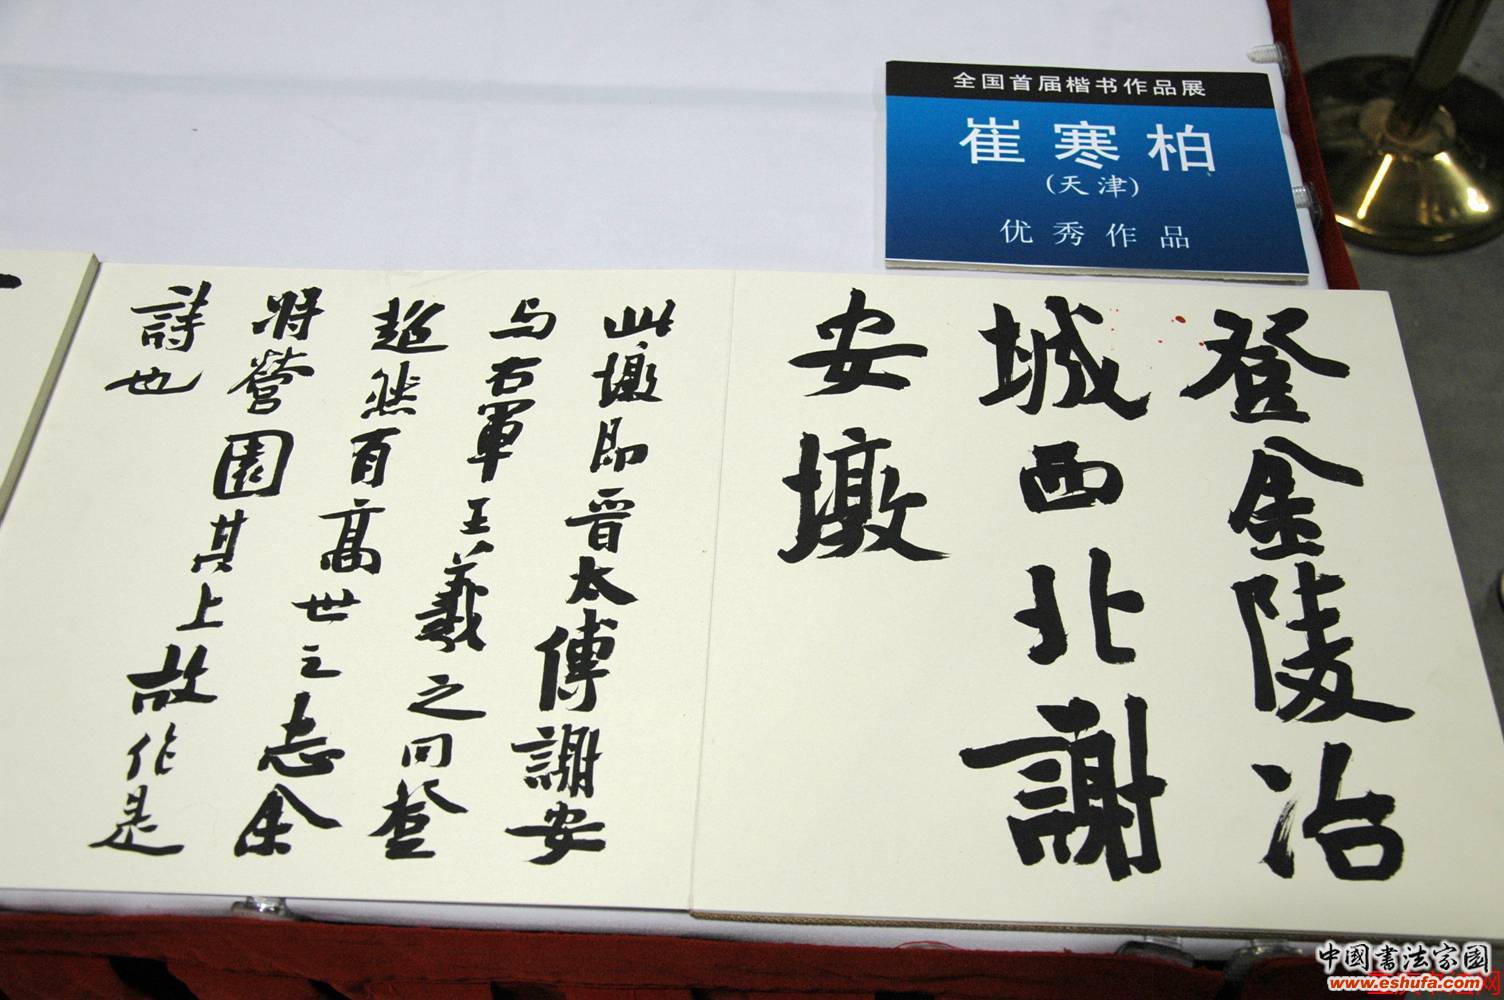 全国首届楷书作品展
崔寒柏
(天津)
优秀作品
登金陵冶
城西北謝
安墩
此墩即晋太傅謝安
与右軍王羲之同登
超然有高世之志余
将營園其上故作是
詩也
中國書法家園
www.eshufa.com